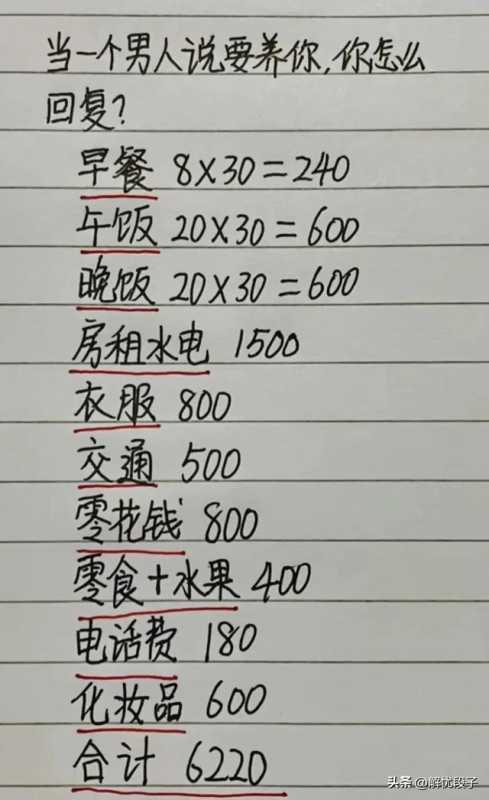 当一个男人说要养你,你怎么
回复?
早餐 8×30=240
午饭 20×30=600
晚饭 20×30=600
房租水电 1500
衣服 800
交通 500
零花钱 800
零食+水果 400
电话费 180
化妆品 600
合计 6220
头条 @解忧段子